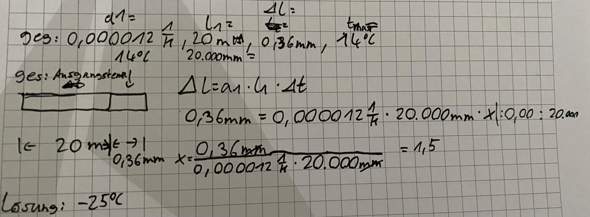 a1= l1= Δl= tmax=
geg: 0,000012 1/K, 20 m, 0,36mm, 14°C
14°C 20.000mm =
ges: Ausgangstem
Δl=a1·l1·Δt
0,36mm = 0,000012 1/K · 20.000mm · x |:0,00 : 20.000
|← 20 m →|← →|
0,36mm
x= 0,36mm / 0,000012 1/K · 20.000mm = 1,5
Lösung: -25°C